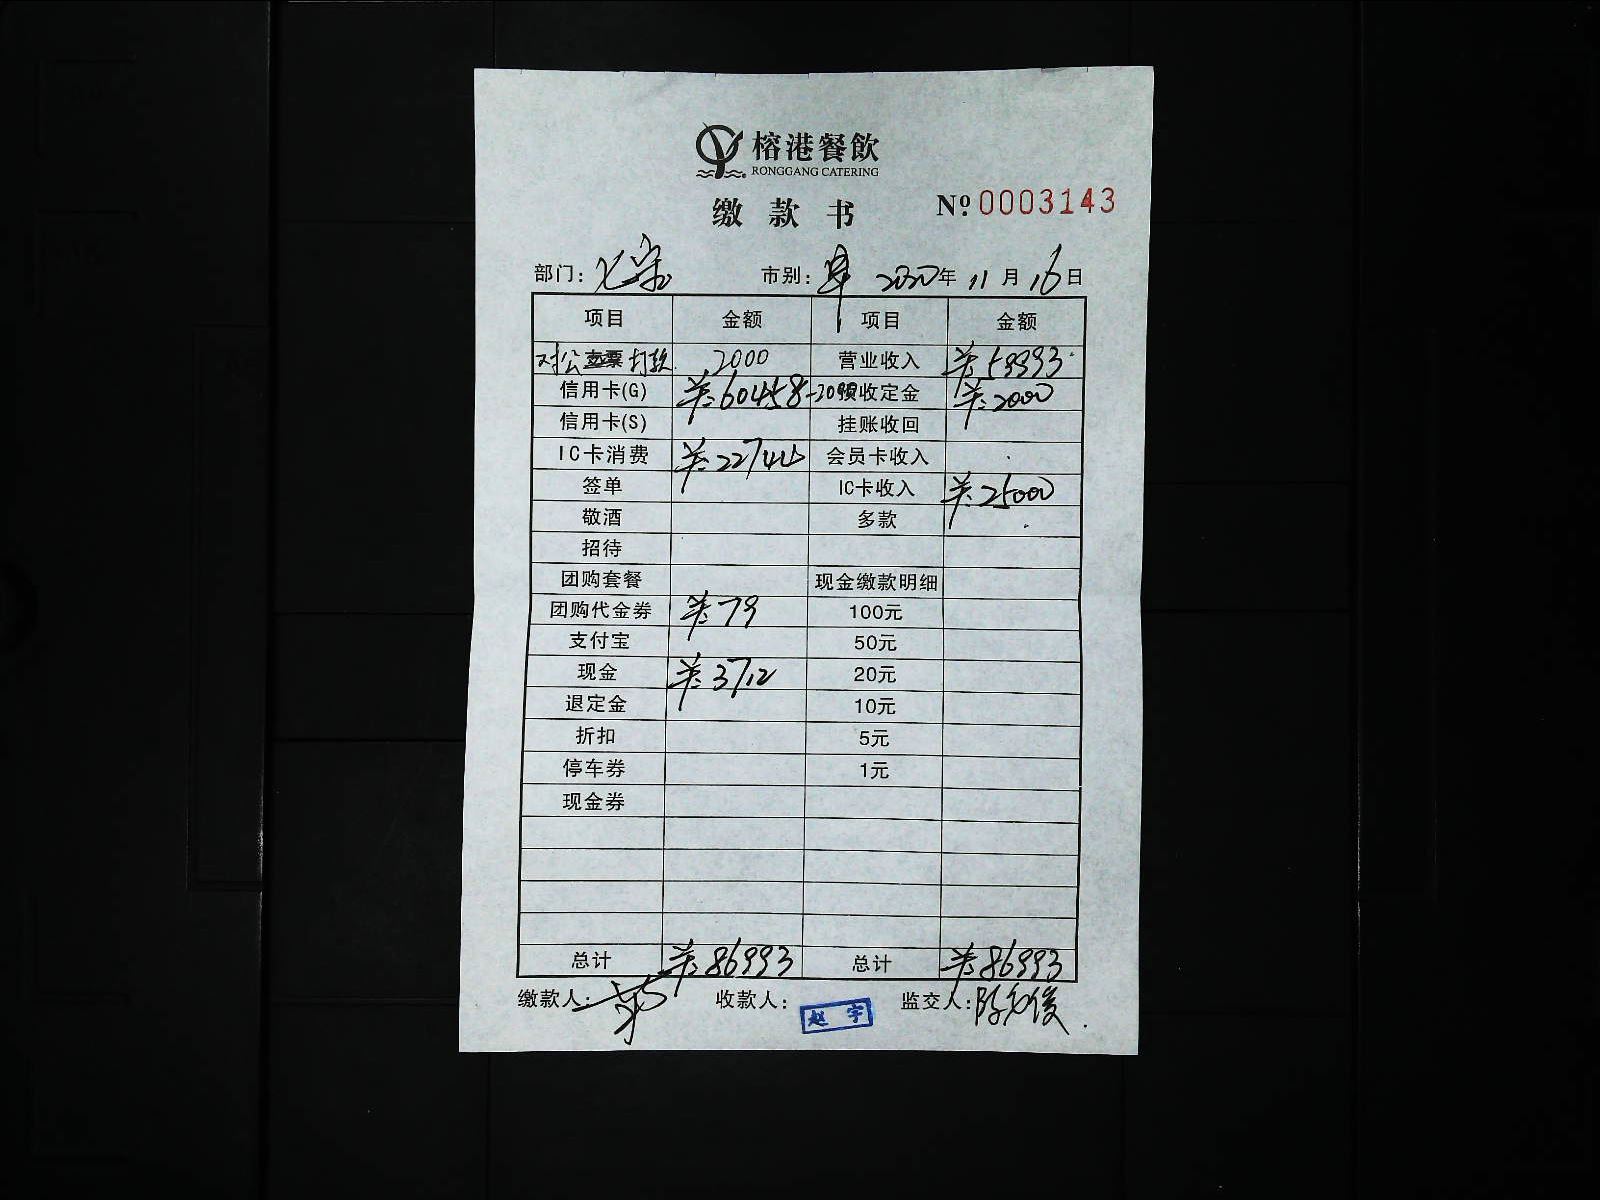 榕港餐飲
RONGGANG CATERING
缴款书 Nº 0003143
部门: 七宝 市别: 早 2020年 11月 16日
项目 金额 项目 金额
对公 打款 2000 营业收入 ¥:59993
信用卡(G) ¥:60458 预收定金 ¥:2000
信用卡(S) 挂账收回
IC卡消费 ¥:22744 会员卡收入
签单 IC卡收入 ¥:25000
敬酒 多款
招待
团购套餐 现金缴款明细
团购代金券 ¥:79 100元
支付宝 50元
现金 ¥:3712 20元
退定金 10元
折扣 5元
停车券 1元
现金券
总计 ¥:86993 总计 ¥:86993
缴款人: 收款人: 赵宇 监交人: 陈 俊